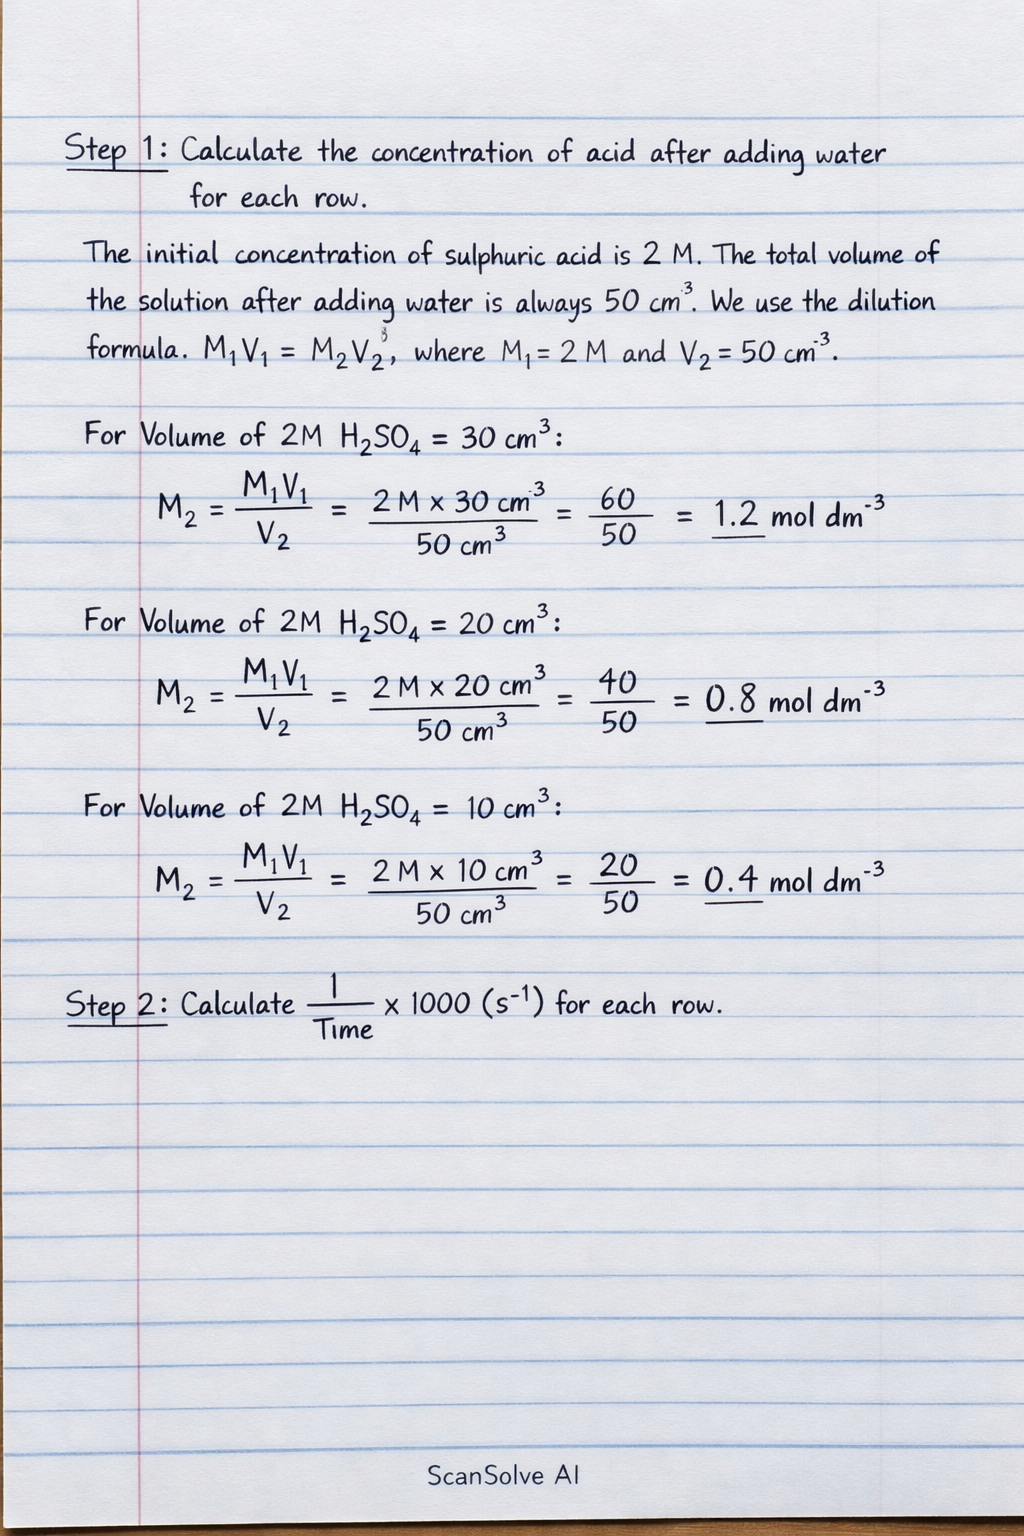 Step 1: Calculate the concentration of acid after adding water
for each row.
The initial concentration of sulphuric acid is 2 M. The total volume of
the solution after adding water is always 50 cm³. We use the dilution
formula. M₁V₁ = M₂V₂³, where M₁ = 2 M and V₂ = 50 cm⁻³.
For Volume of 2M H₂SO₄ = 30 cm³:
M₂ = M₁V₁ / V₂ = 2 M x 30 cm³ / 50 cm³ = 60 / 50 = 1.2 mol dm⁻³
For Volume of 2M H₂SO₄ = 20 cm³:
M₂ = M₁V₁ / V₂ = 2 M x 20 cm³ / 50 cm³ = 40 / 50 = 0.8 mol dm⁻³
For Volume of 2M H₂SO₄ = 10 cm³:
M₂ = M₁V₁ / V₂ = 2 M x 10 cm³ / 50 cm³ = 20 / 50 = 0.4 mol dm⁻³
Step 2: Calculate 1 / Time x 1000 (s⁻¹) for each row.
ScanSolve AI